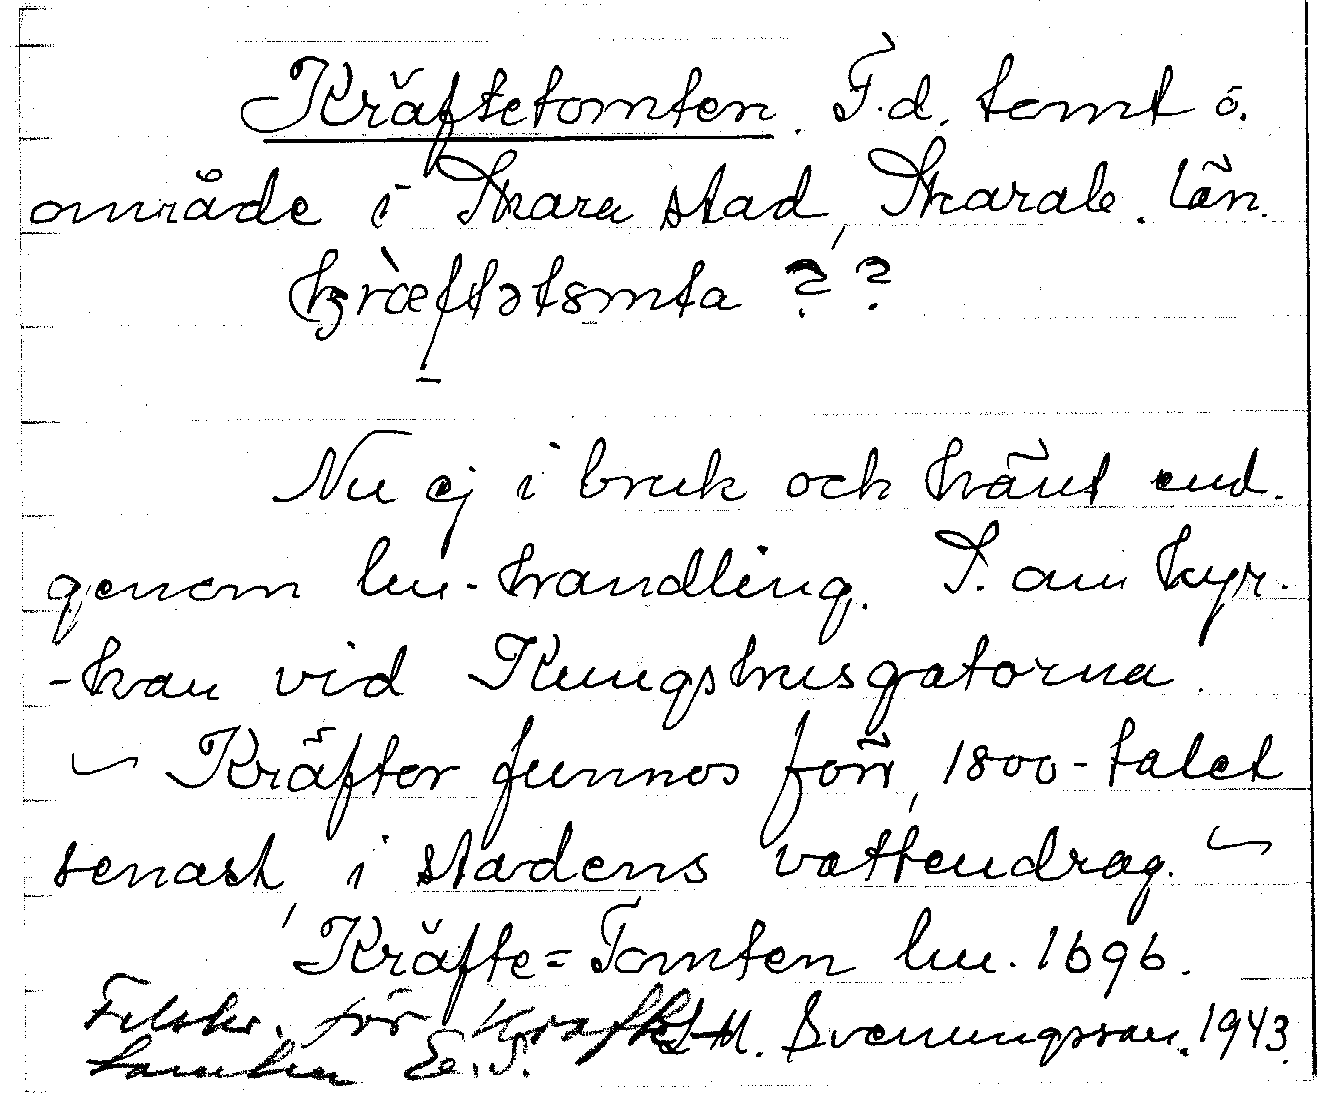 Kräftetomten. F.d. tomt o.
område i Skara stad, Skarab. län.
kræftətomta ? ?
Nu ej i bruk och känt end.
genom lm-handling. S. om kyr-
-kan vid Kungshusgatorna.
~ Kräftor funnos förr, 1800-talet
senast, i stadens vattendrag. ~
Kräfte=Tomten lm. 1696.
Felskr. för Kraft H. Svenungsson. 1943.
tomten E.S.